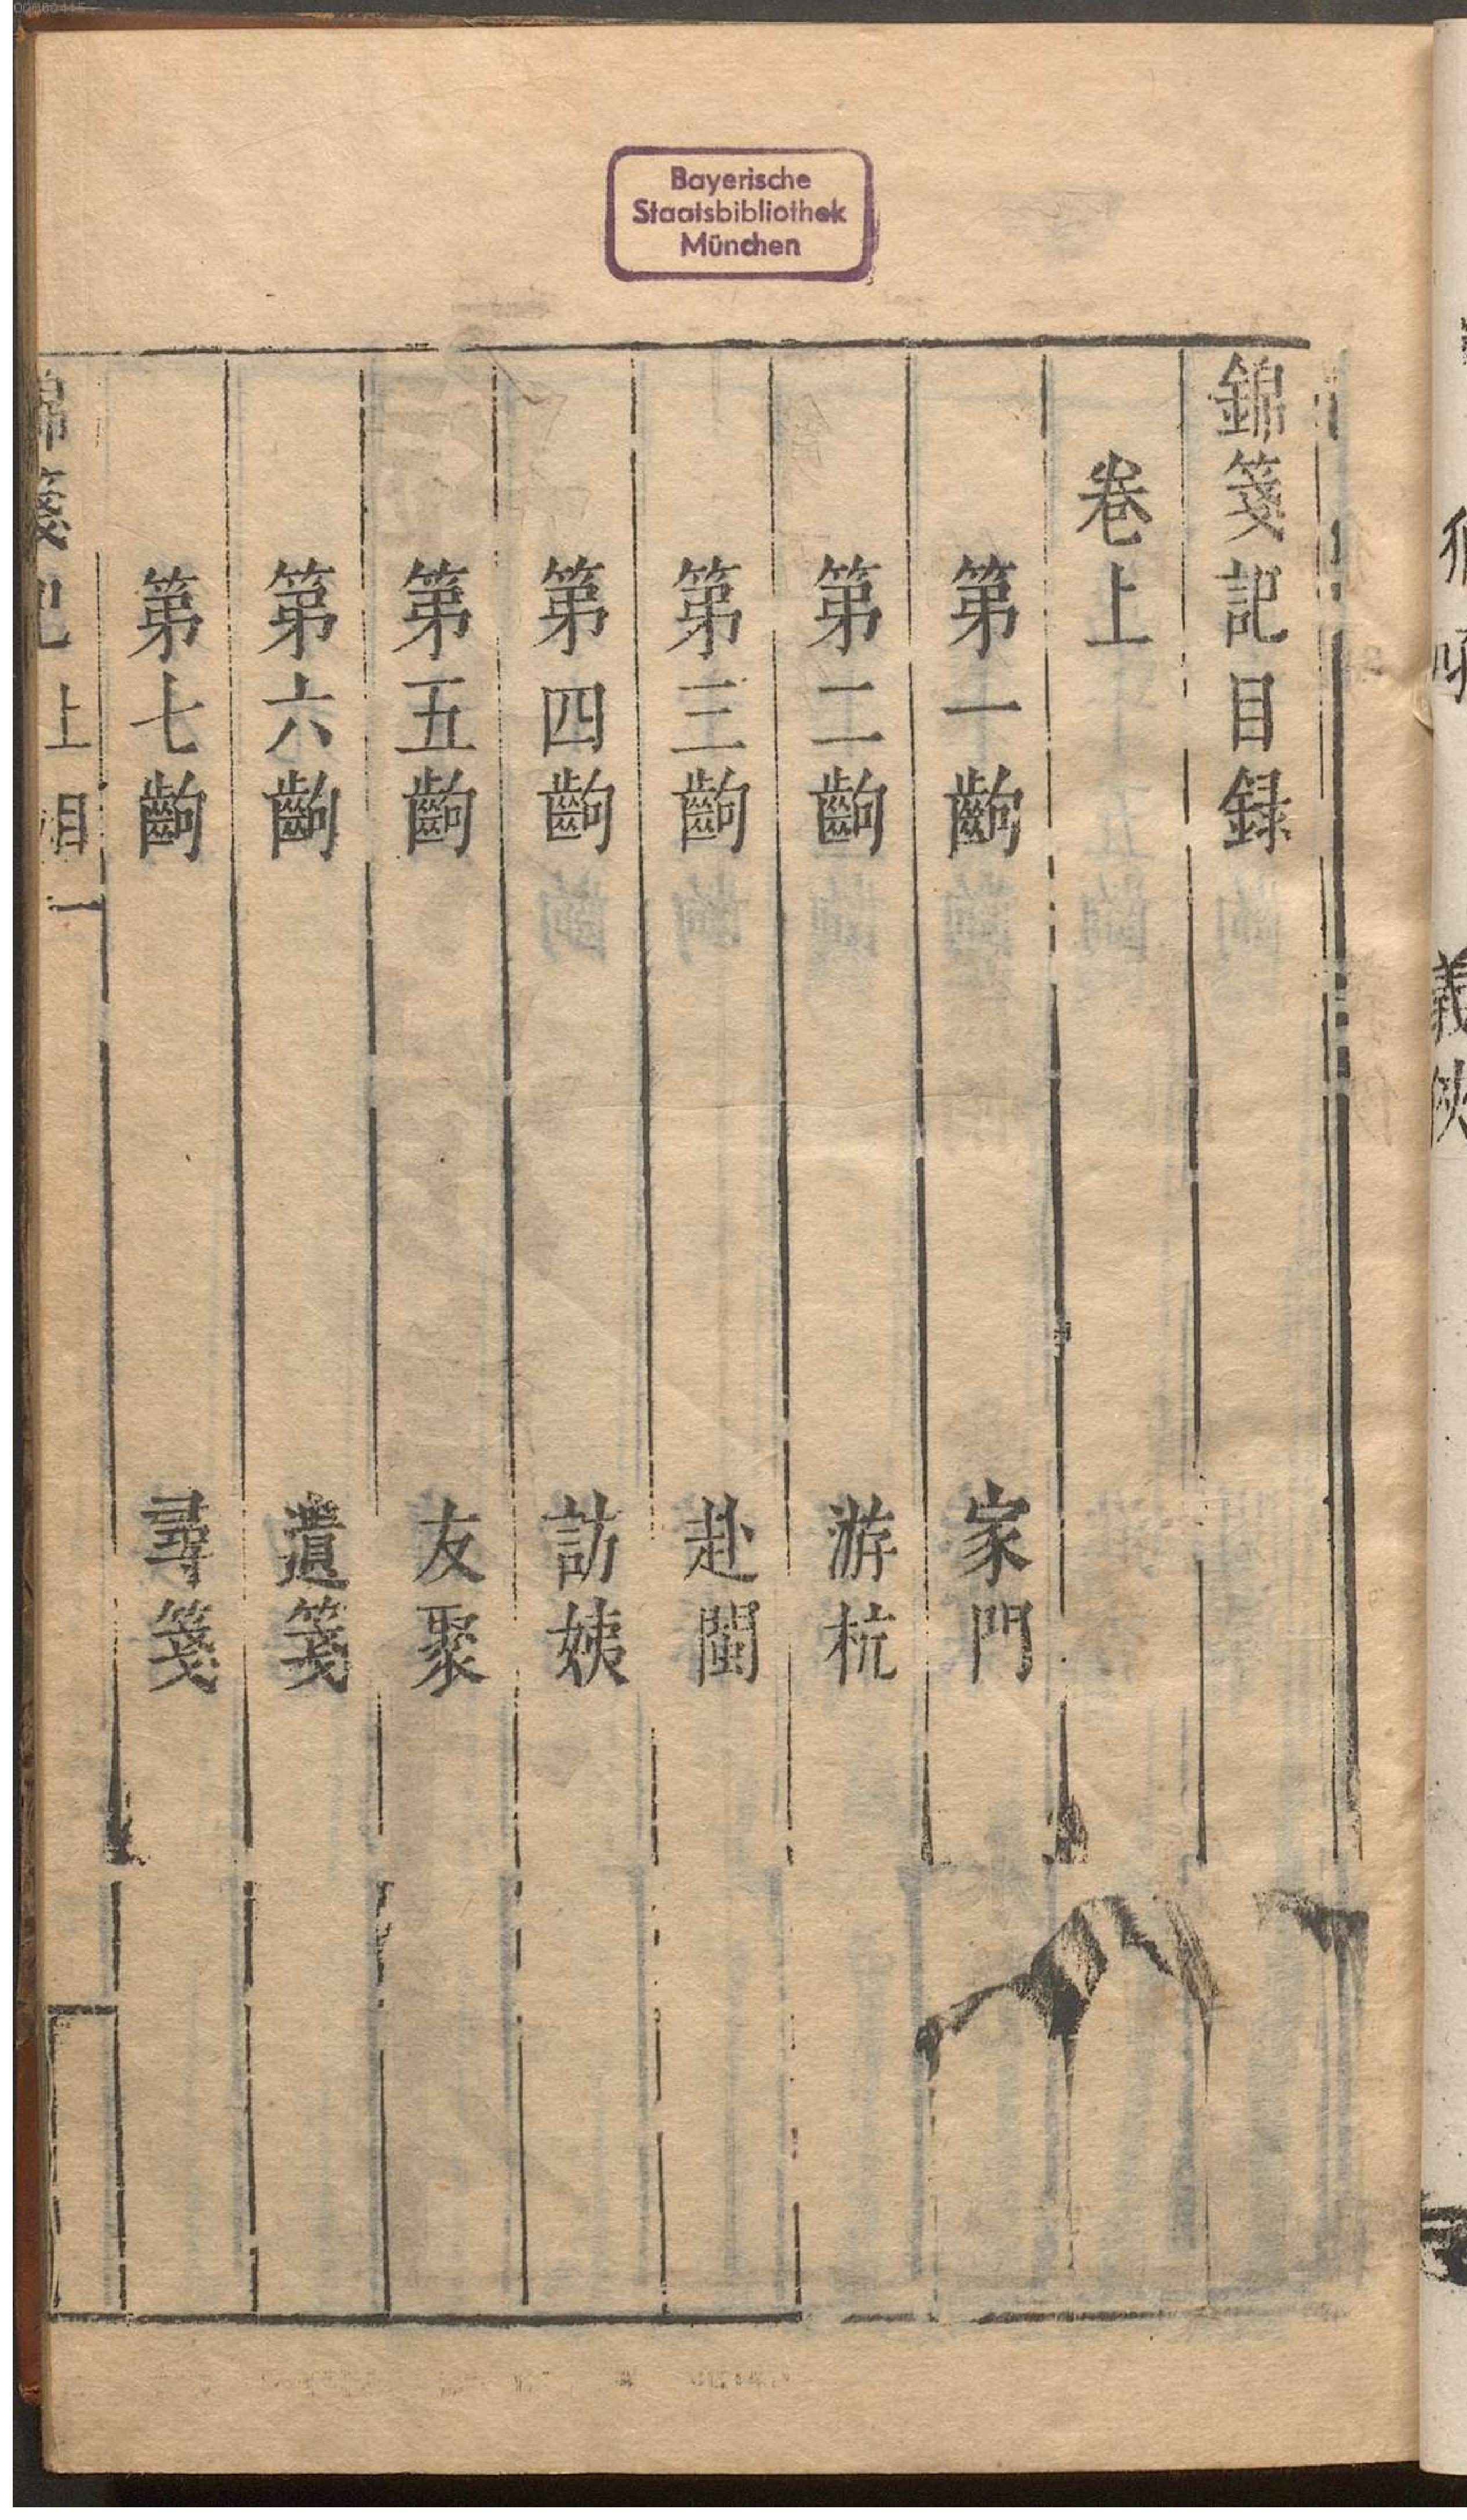 Bayerische
Staatsbibliothek
München
錦箋記目録
卷上
第一齣 家門
第二齣 游杭
第三齣 赴閩
第四齣 訪姨
第五齣 友聚
第六齣 遺箋
第七齣 尋箋
錦箋記 上 目 一
義俠